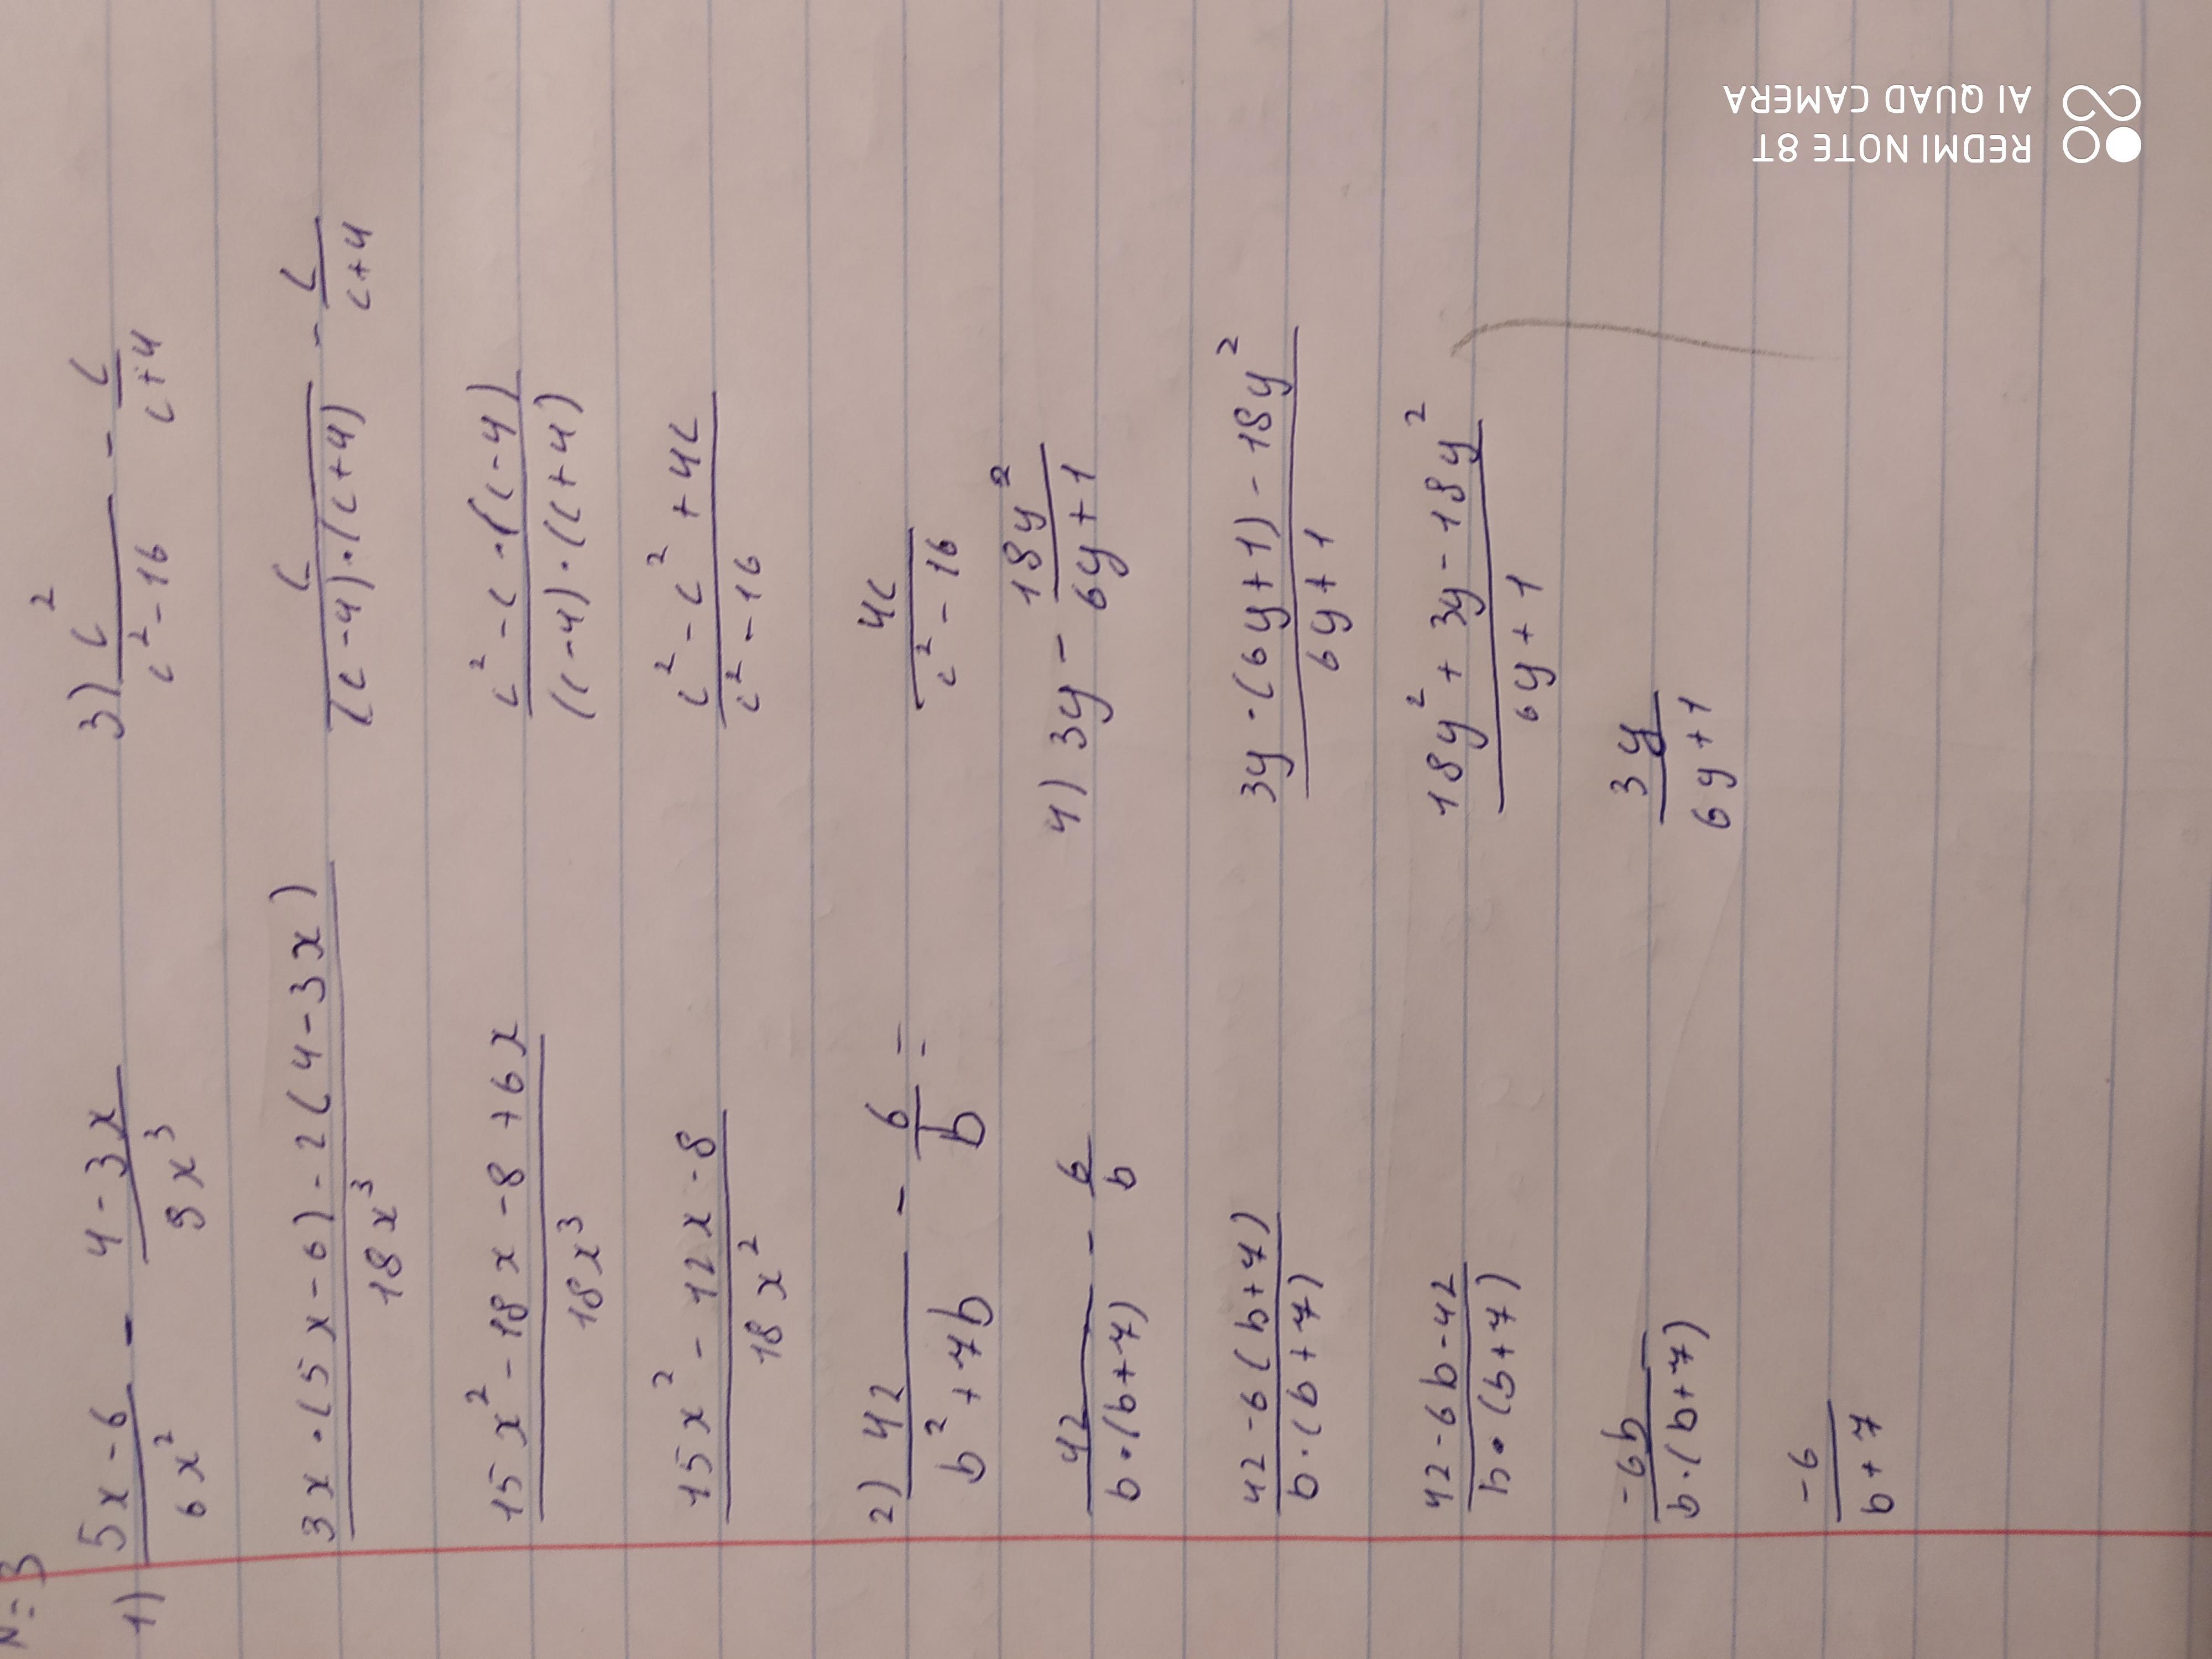 N=3
1) (5x-6)/(6x²) - (4-3x)/(9x³)
(3x·(5x-6)-2(4-3x))/(18x³)
(15x²-18x-8+6x)/(18x³)
(15x²-12x-8)/(18x²)
2) 42/(b²+7b) - 6/b =
42/(b·(b+7)) - 6/b
(42-6(b+7))/(b·(b+7))
(42-6b-42)/(b·(b+7))
(-6b)/(b·(b+7))
(-6)/(b+7)
3) c²/(c²-16) - c/(c+4)
c/((c-4)·(c+4)) - c/(c+4)
(c²-c·(c-4))/((c-4)·(c+4))
(c²-c²+4c)/(c²-16)
4c/(c²-16)
4) 3y - 18y²/(6y+1)
(3y·(6y+1)-18y²)/(6y+1)
(18y²+3y-18y²)/(6y+1)
3y/(6y+1)
REDMI NOTE 8T
AI QUAD CAMERA